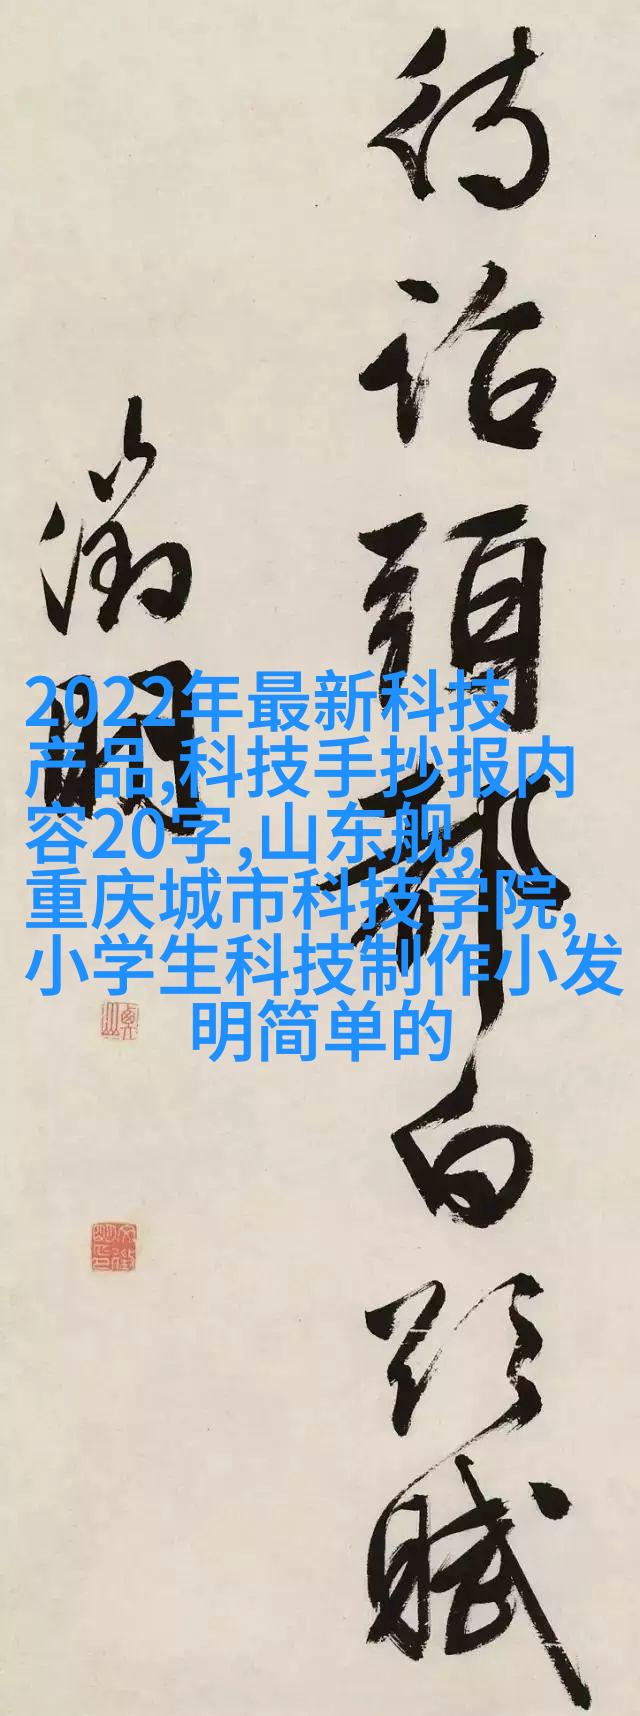 待詔頭都白賦
徵明
2022年最新科技
产品,科技手抄报内
容20字,山东舰,
重庆城市科技学院,
小学生科技制作小发
明简单的